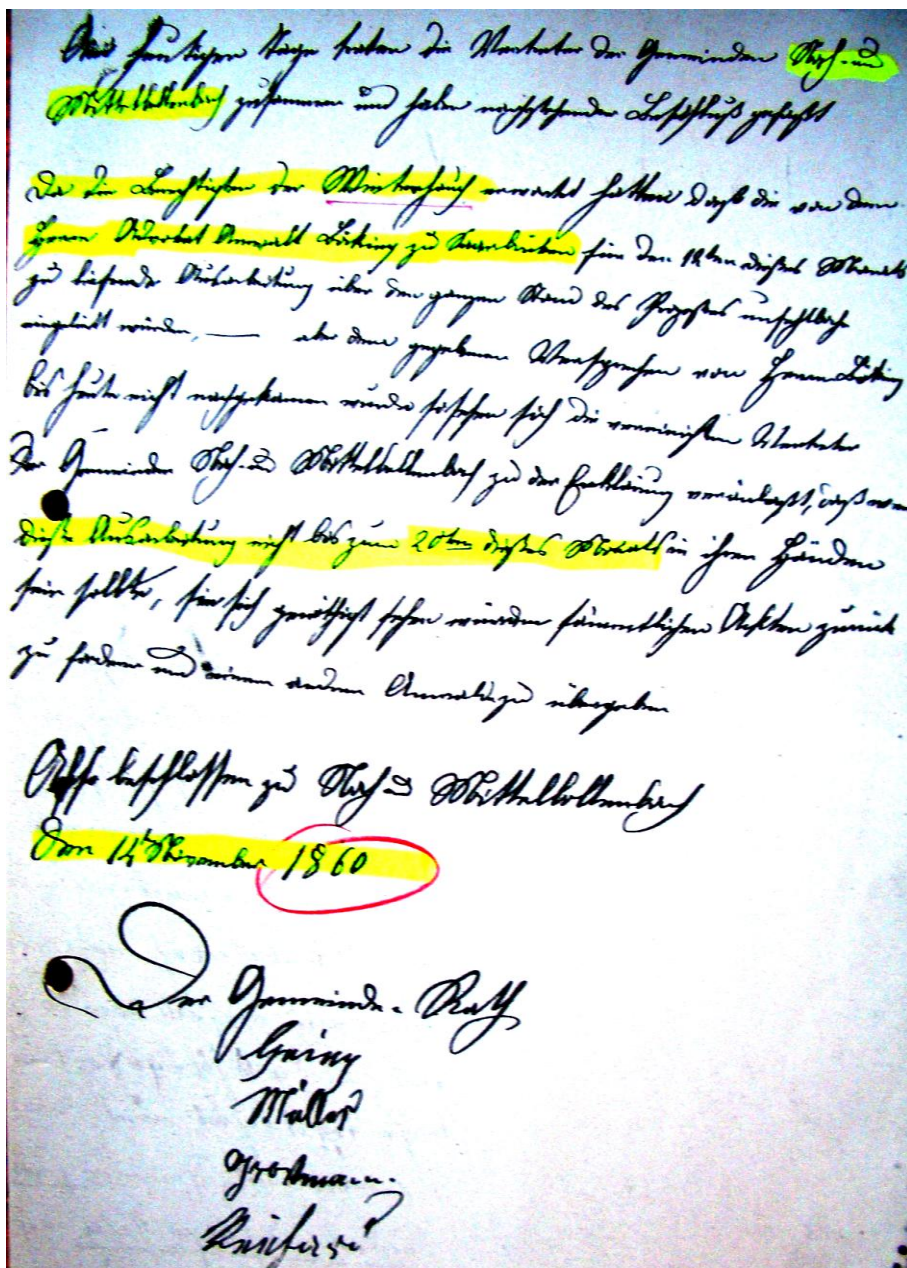 Am heutigen Tage traten die Vertreter der Gemeinden Nah- und
Mittelbollenbach zusammen und haben nachstehender Beschluß gefaßt
Da die Berechtigten der Winterhauch erwartet hatten daß die von dem
Herrn Advokat Anwalt Böking zu Saarbrücken für den 12ten dieses Monats
zu liefernde Ausarbeitung über den ganzen Stand des Prozesses unfehlbar
eingelöst würden, — aber dem gegebenen Versprechen von Herrn Böking
bis heute nicht nachgekommen wurde so sehen sich die vereinigten Vertreter
der Gemeinden Nah- u Mittelbollenbach zu der Erklärung veranlaßt, daß wen
diese Ausarbeitung nicht bis zum 20ten dieses Monats in ihren Händen
sein sollte, sie sich genöthigt sehen würden sämmtlichen Ackten zurück
zu fordern und einem andern Anwalt zu übergeben
Also beschlossen zu Nah u Mittelbollenbach
Den 14t November 1860
Der Gemeinde-Rath
Müller